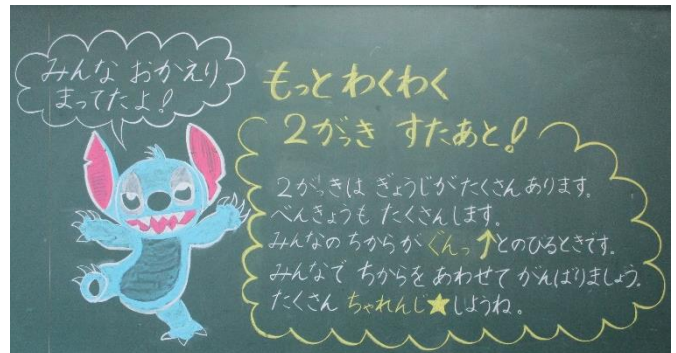 みんな おかえり
まってたよ!
もっと わくわく
2がっき すたあと!
2がっきは ぎょうじが たくさん あります。
べんきょうも たくさんします。
みんなの ちからが ぐんっ↑とのびるときです。
みんなで ちからを あわせて がんばりましょう。
たくさん ちゃれんじ★しようね。